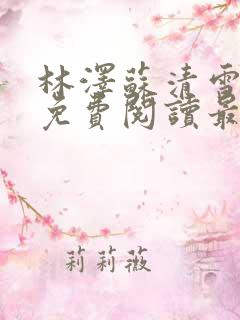 林澤蘇清雪
免費閱讀最
莉莉薇